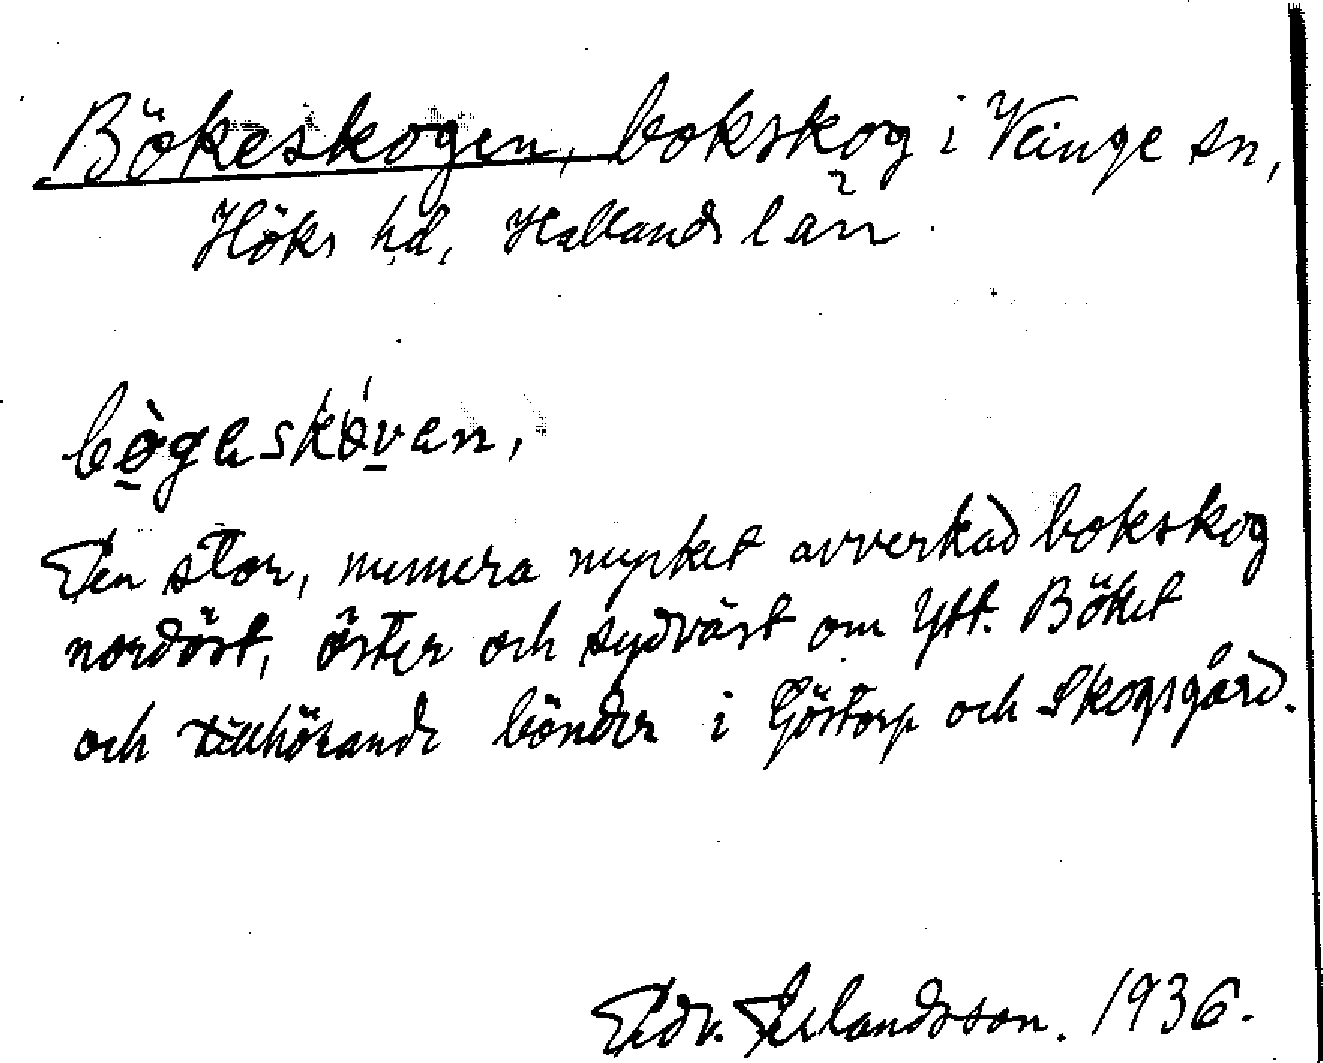 Bökeskogen, bokskog i Veinge sn,
Höks hd, Hallands län.
bø̀gaskǿvan,
En stor, numera mycket avverkad bokskog
nordöst, öster och sydväst om Ytt. Böket
och tillhörande bönder i Göstorp och Skogsgård.
Edv. Erlandsson. 1936.